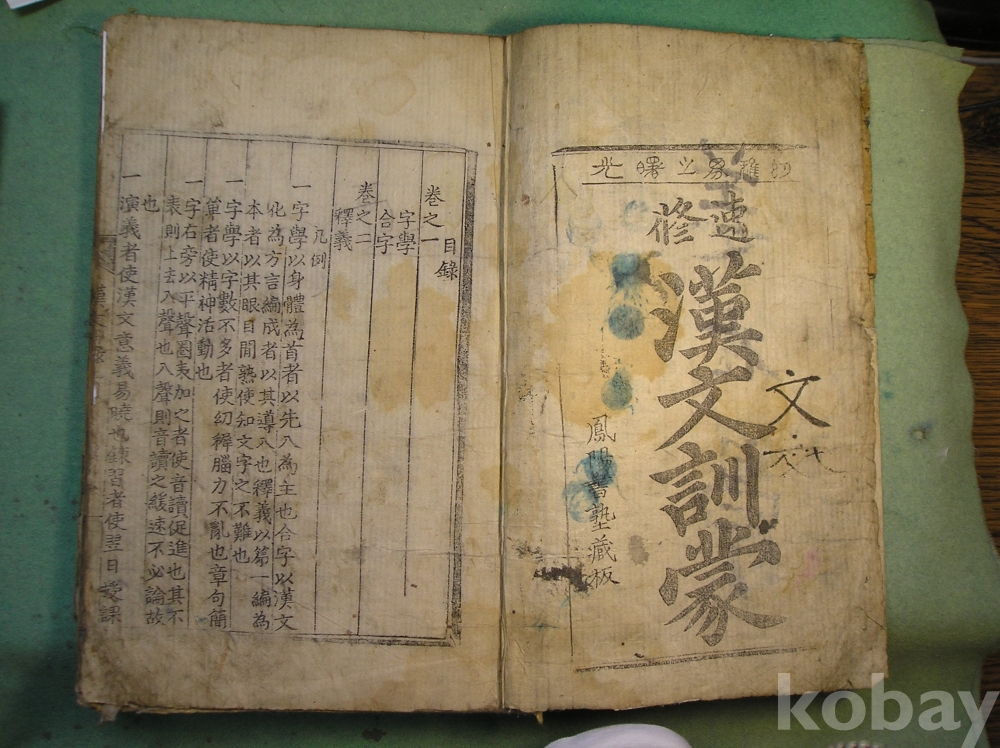 之曙光
速修
漢文訓蒙
文
鳳陽書塾藏板
目錄
卷之一
字學
合字
卷之二
釋義
凡例
一字學以身體為首者以先入為主也合字以漢文
化為方言編成者以其導入也釋義以第一編為
本者以其眼目閒熟使知文字之不難也
一字學以字數不多者使幼穉腦力不亂也章句簡
單者使精神活動也
一字右旁以平聲圈表加之者使音讀促進也其不
表則上去入聲也入聲則音讀之緩速不必論故
也
一演義者使漢文意義易曉也鍊習者使翌日受課
kobay